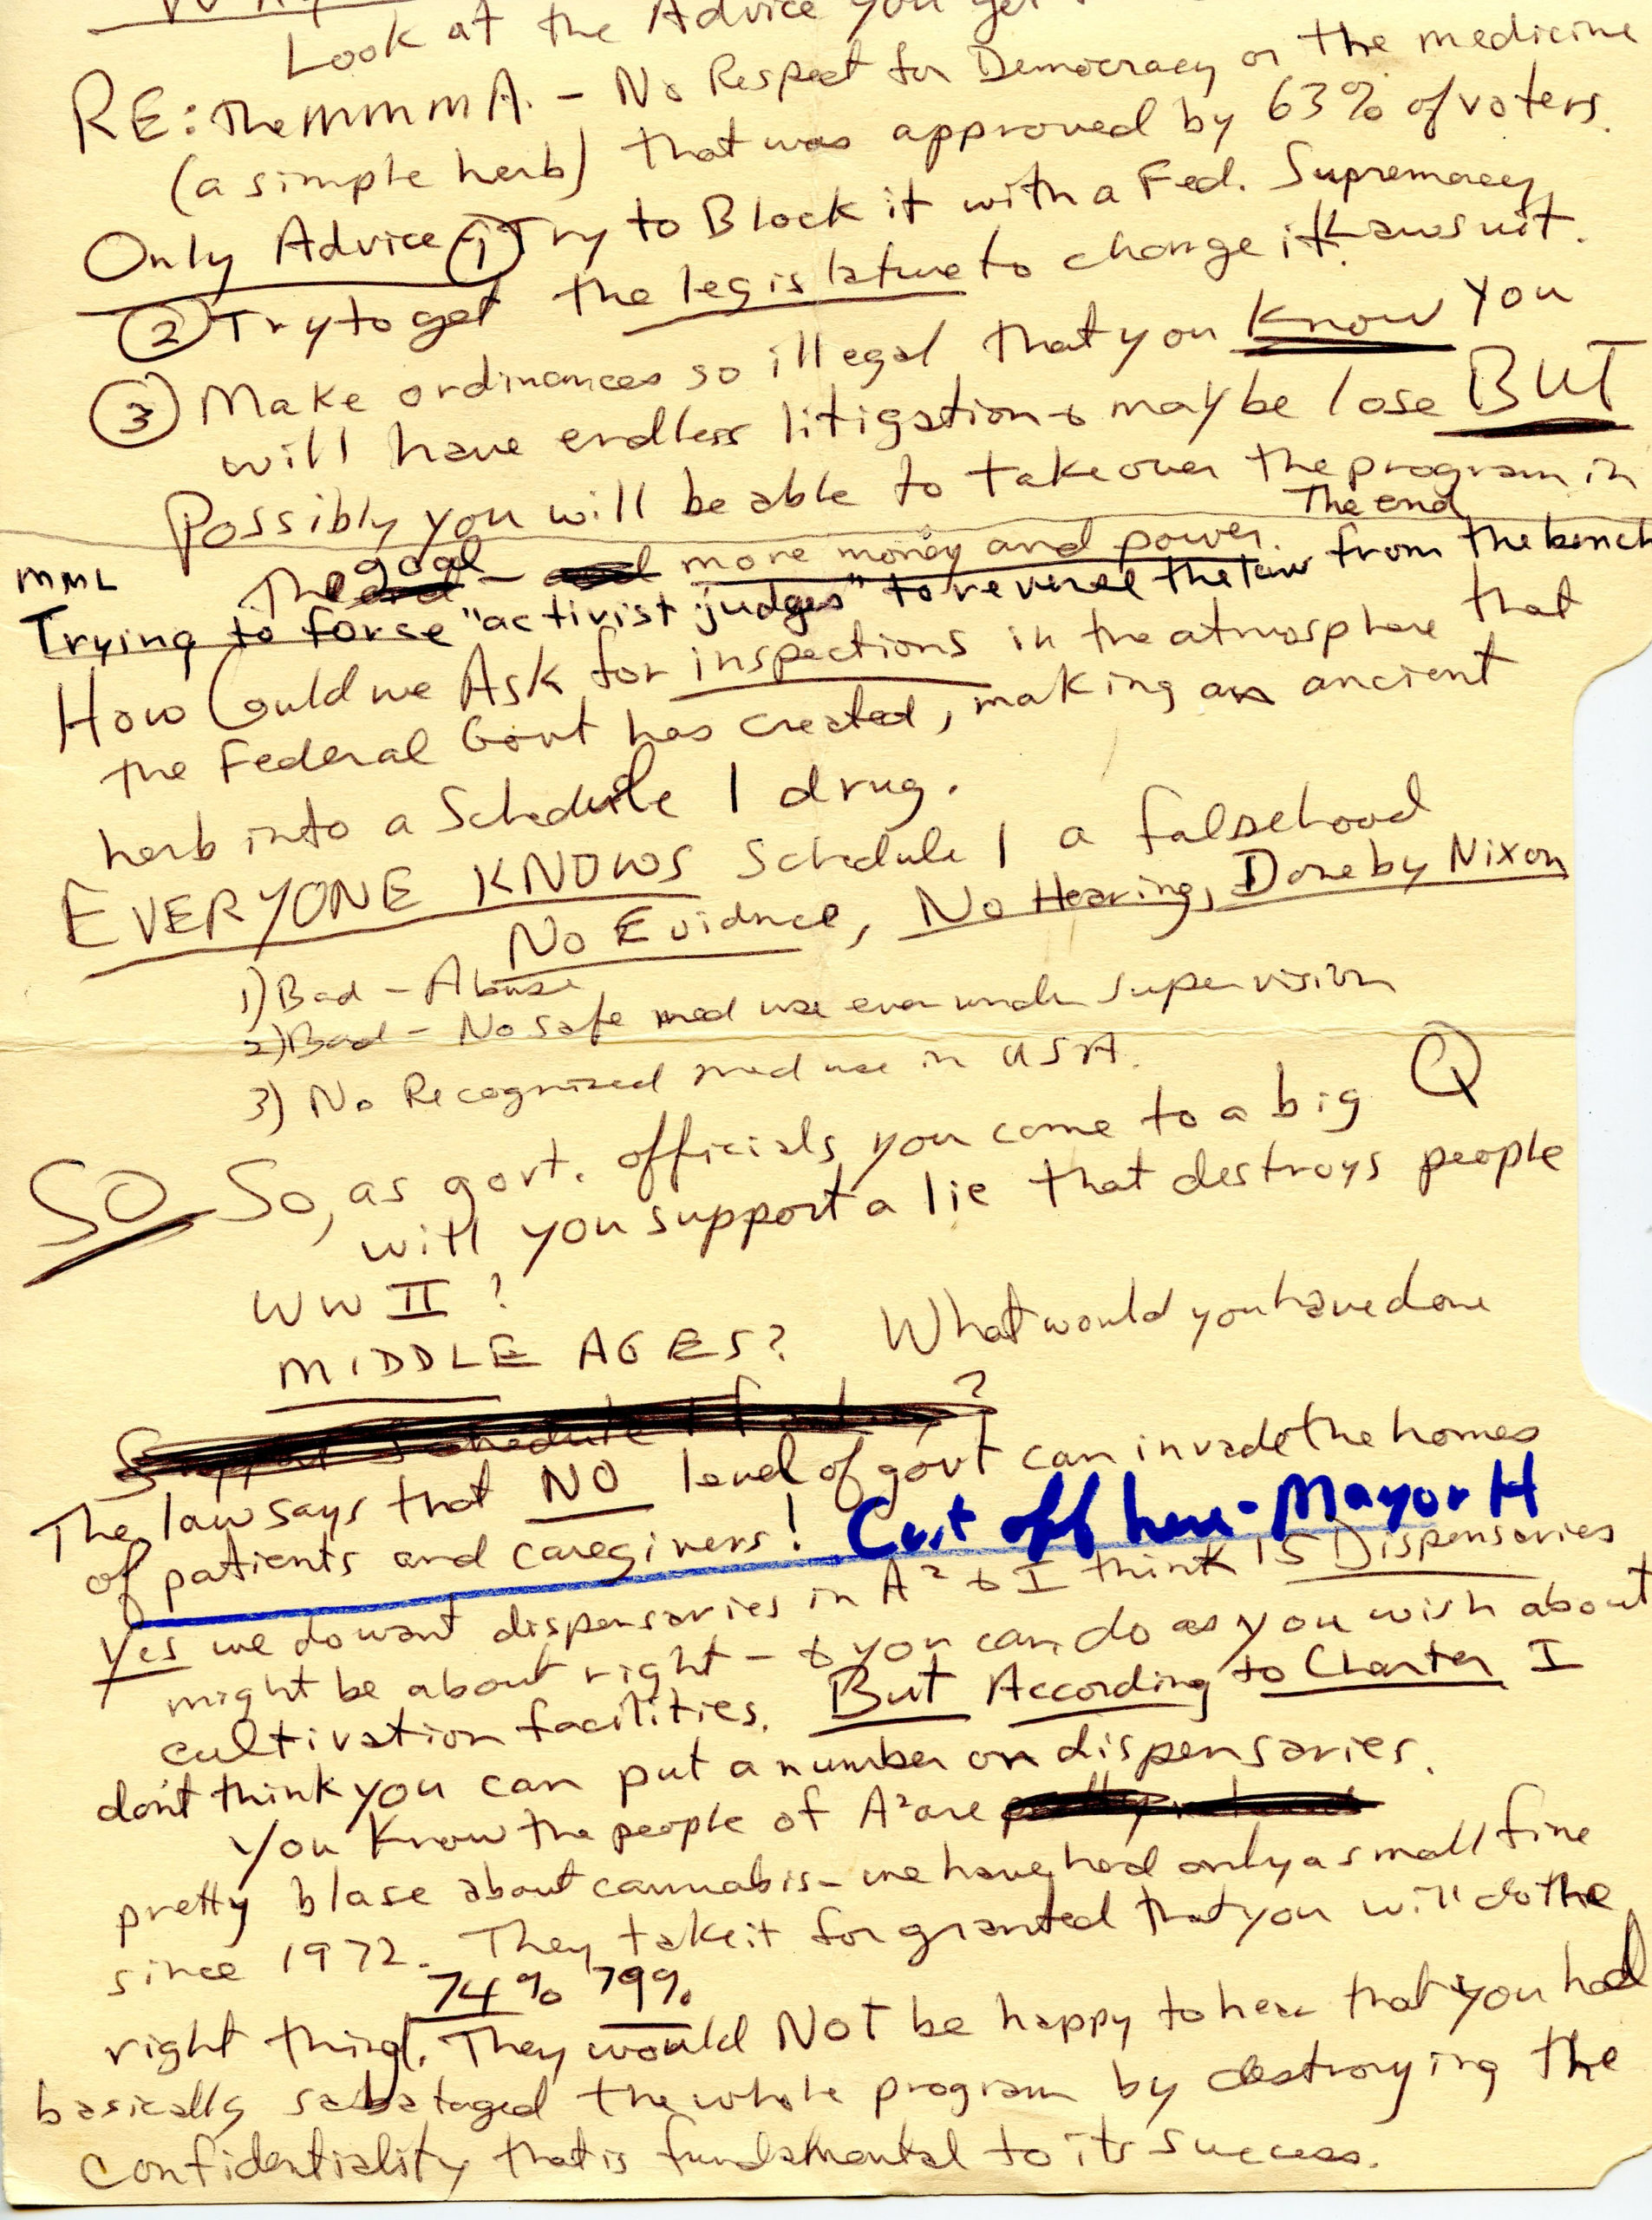 Look at the Advice you get
RE: The MMMA. - No Respect for Democracy or the medicine
(a simple herb) that was approved by 63% of voters.
Only Advice - ① Try to Block it with a Fed. Supremacy
Lawsuit.
② Try to get the legislature to change it.
③ Make ordinances so illegal that you know you
will have endless litigation & maybe lose BUT
Possibly you will be able to takeover the program in
The end
The goal - more money and power.
MML
Trying to force "activist judges" to reverse the law from the bench
How Could we Ask for inspections in the atmosphere that
the Federal Govt has created, making an ancient
herb into a Schedule 1 drug.
EVERYONE KNOWS Schedule 1 a falsehood
No Evidence, No Hearing, Done by Nixon
1) Bad - Abuse
2) Bad - No safe med use even under supervision
3) No Recognized med use in USA.
SO So, as govt. officials you come to a big Q
will you support a lie that destroys people
WW II?
MIDDLE AGES? What would you have done
?
The law says that NO level of govt can invade the homes
of patients and caregivers! Cut off here - Mayor H
Yes we do want dispensaries in A² & I think 15 Dispensaries
might be about right - & you can do as you wish about
cultivation facilities. But According to Charter I
don't think you can put a number on dispensaries.
You know the people of A² are
pretty blase about cannabis - we have had only a small fine
since 1972. They take it for granted that you will do the
74% 79%
right thing. They would NOT be happy to hear that you had
basically sabataged the whole program by destroying the
confidentiality that is fundamental to its success.